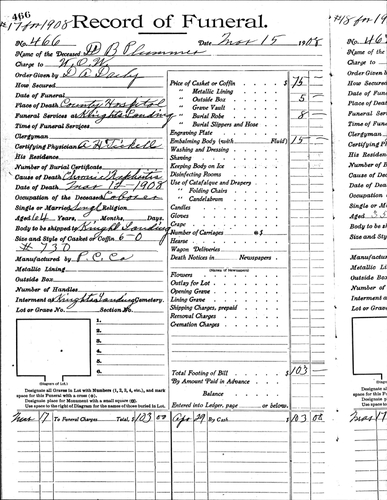 466
17 for 1908
Record of Funeral.
No. 466 Date, Mar 15 1908
Name of the Deceased D B Plummer
Charge to W.O.W.
Order Given by D A
How Secured
Date of Funeral
Place of Death County Hospital
Funeral Services at Knights Landing
Time of Funeral Services
Clergyman
Certifying Physician A H
His Residence
Number of Burial Certificate
Cause of Death Chronic Nephritis
Date of Death Mar 12 1908
Occupation of the Deceased Laborer
Single or Married Singl Religion
Aged 64 Years, Months, Days.
Body to be shipped to Knights Landing
Size and Style of Casket or Coffin 6-0
# 730
Manufactured by P.C.Co
Metallic Lining
Outside Box
Number of Handles
Interment at Knights Landing Cemetery.
Lot or Grave No. Section No.
1.
2.
3.
4.
5.
6.
(Diagram of Lot.)
Designate all Graves in Lot with Numbers (1, 2, 3, 4, etc.), and mark
space for this Funeral with a cross
Designate place for Monument with a small square
Use space to the right of Diagram for the names of those buried in Lot.
Price of Casket or Coffin $ 75
" Metallic Lining
" Outside Box 5
" Grave Vault
" Burial Robe 8
" Burial Slippers and Hose
Engraving Plate
Embalming Body (with Fluid) 15
Washing and Dressing
Shaving
Keeping Body on Ice
Disinfecting Rooms
Use of Catafalque and Drapery
" Folding Chairs
" Candelabrum
Candles
Gloves
Crape
Number of Carriages @ $
Hearse
Wagon Deliveries
Death Notices in Newspapers
(Names of Newspapers)
Flowers
Outlay for Lot
Opening Grave
Lining Grave
Shipping Charges, prepaid
Removal Charges
Cremation Charges
Total Footing of Bill $ 103
By Amount Paid in Advance
Balance
Entered into Ledger, page or below.
Mar 17 To Funeral Charges Total, $ 103 00 Apr 29 By Cash $ 103 00
18 for 190
No. 46
Name of the
Charge to
Order Given
How Secured
Date of Fun
Place of Dea
Funeral Ser
Time of Fun
Clergyman
Certifying P
His Residen
Number of B
Cause of Dea
Date of Deat
Occupation
Single or Ma
Aged 35
Body to be sh
Size and Sty
Manufacture
Metallic Lini
Outside Box
Number of H
Interment at
Lot or Grave
Designate
space for th
Designate
Use space
Mar 17